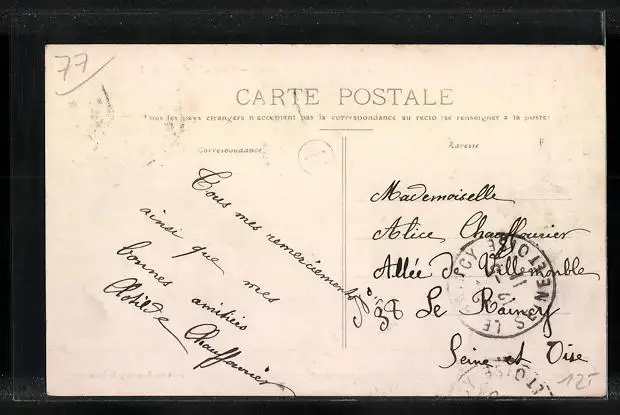 77
CARTE POSTALE
Tous les pays étrangers n'acceptent pas la correspondance au recto (se renseigner à la poste)
Correspondance
Adresse
Tous mes remerciements
ainsi que mes
bonnes amitiés
Clotilde Chauffourier
Mademoiselle
Alice Chauffourier
Allée de Villemomble
No 38 Le Raincy
Seine et Oise
12